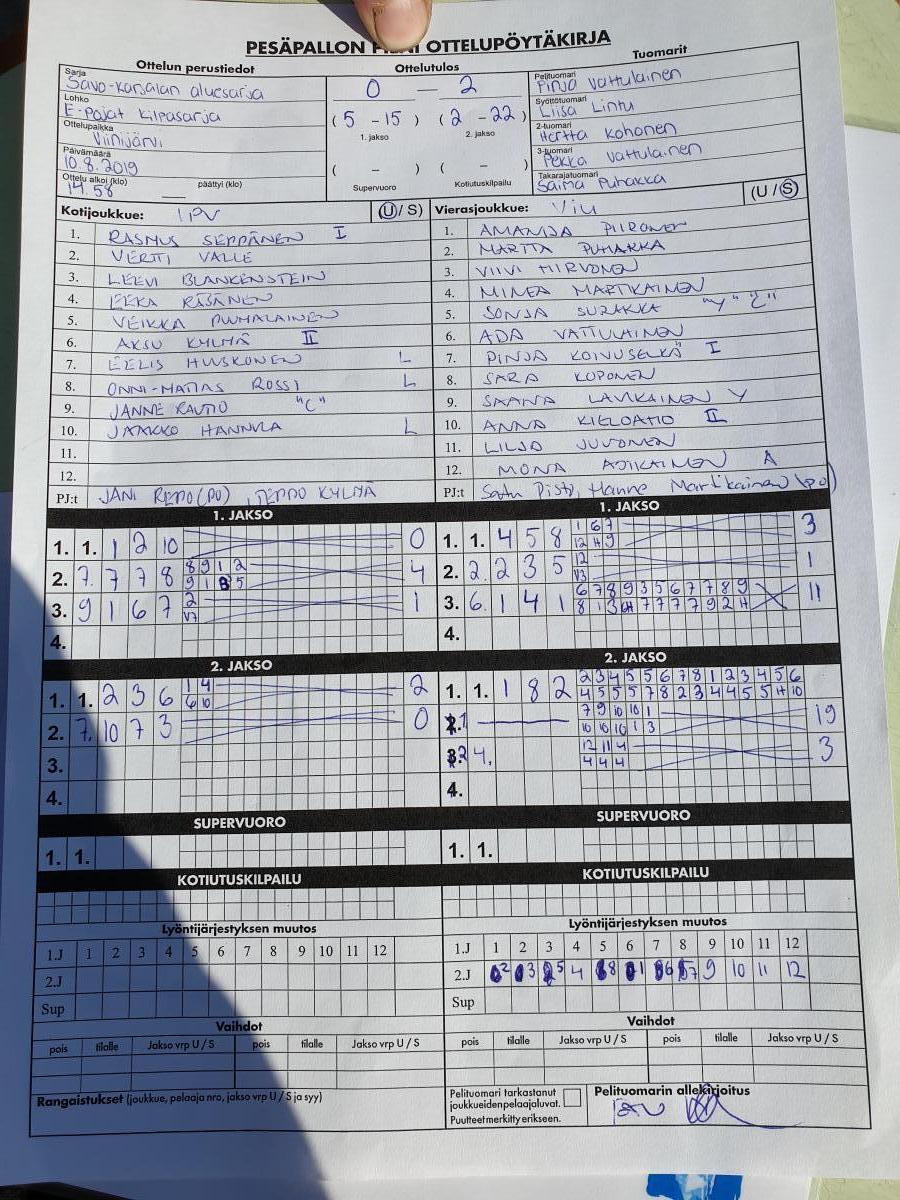 PESÄPALLON OTTELUPÖYTÄKIRJA
Ottelun perustiedot
Sarja
Savo-Karjalan aluesarja
Lohko
E-pojat kilpasarja
Ottelupaikka
Viinijärvi
Päivämäärä
10.8.2019
Ottelu alkoi (klo) päättyi (klo)
14.58
Ottelutulos
0 – 2
( 5 - 15 ) ( 2 - 22 )
1. jakso 2. jakso
( - ) ( - )
Supervuoro Kotiutuskilpailu
Tuomarit
Pelituomari
Pinja Vattulainen
Syöttötuomari
Liisa Lintu
2-tuomari
Hertta Kohonen
3-tuomari
Pekka Vattulainen
Takarajatuomari
Saima Puhakka
Kotijoukkue: IPV (U/S)
1. RASMUS SEPPÄNEN I
2. VERTTI VALLE
3. LEEVI BLANKENSTEIN
4. EEKA RÄSÄNEN
5. VEIKKA PUUMALAINEN
6. AKSU KYLMÄ II
7. EELIS HUUSKONEN L
8. ONNI-MATIAS ROSSI L
9. JANNE RAUTIO "C"
10. JAAKKO HANNULA L
11.
12.
PJ:t JANI REPO (PO), TEPPO KYLMÄ
Vierasjoukkue: ViU (U/S)
1. AMANDA PIIRONEN
2. MARTTA PUHAKKA
3. VIIVI HIRVONEN
4. MINEA MARTIKAINEN
5. SONJA SUTAKKA "Y" "C"
6. ADA VATTULAINEN
7. PINJA KOIVUSELKÄ I
8. SARA KOPONEN
9. SAANA LAVIKAINEN Y
10. ANNA KIELOAHO II
11. LILJA JUVONEN
12. MONA ASIKAINEN A
PJ:t Satu Pisto, Hanne Martikainen (po)
1. JAKSO
1. 1. 1 2 10 0
2. 7. 7 7 8 8 9 1 2 4
9 1 8 5
3. 9 1 6 7 2 1
V7
4.
2. JAKSO
1. 1. 2 3 6 1 4 2
6 10
2. 7. 10 7 3 0
3.
4.
SUPERVUORO
1. 1.
KOTIUTUSKILPAILU
Lyöntijärjestyksen muutos
1.J 1 2 3 4 5 6 7 8 9 10 11 12
2.J
Sup
Vaihdot
pois tilalle Jakso vrp U / S pois tilalle Jakso vrp U / S
Rangaistukset (joukkue, pelaaja nro, jakso vrp U / S ja syy)
1. JAKSO
1. 1. 4 5 8 1 6 7 3
12 H 9
2. 2. 2 3 5 12 1
V3
3. 6. 1 4 1 6 7 8 9 3 5 6 7 7 8 9 11
8 1 3 6H 7 7 7 7 9 2 H
4.
2. JAKSO
1. 1. 1 8 2 2 3 4 5 5 6 7 8 1 2 3 4 5 6
4 5 5 5 7 8 2 3 4 4 5 5 H 10
7 9 10 10 1 19
10 10 10 1 3
4. 12 11 4 3
4 4 4
4.
SUPERVUORO
1. 1.
KOTIUTUSKILPAILU
Lyöntijärjestyksen muutos
1.J 1 2 3 4 5 6 7 8 9 10 11 12
2.J 2 3 5 4 8 1 6 7 9 10 11 12
Sup
Vaihdot
pois tilalle Jakso vrp U / S pois tilalle Jakso vrp U / S
Pelituomari tarkastanut
joukkueiden pelaajaluvat.
Puutteet merkitty erikseen.
Pelituomarin allekirjoitus